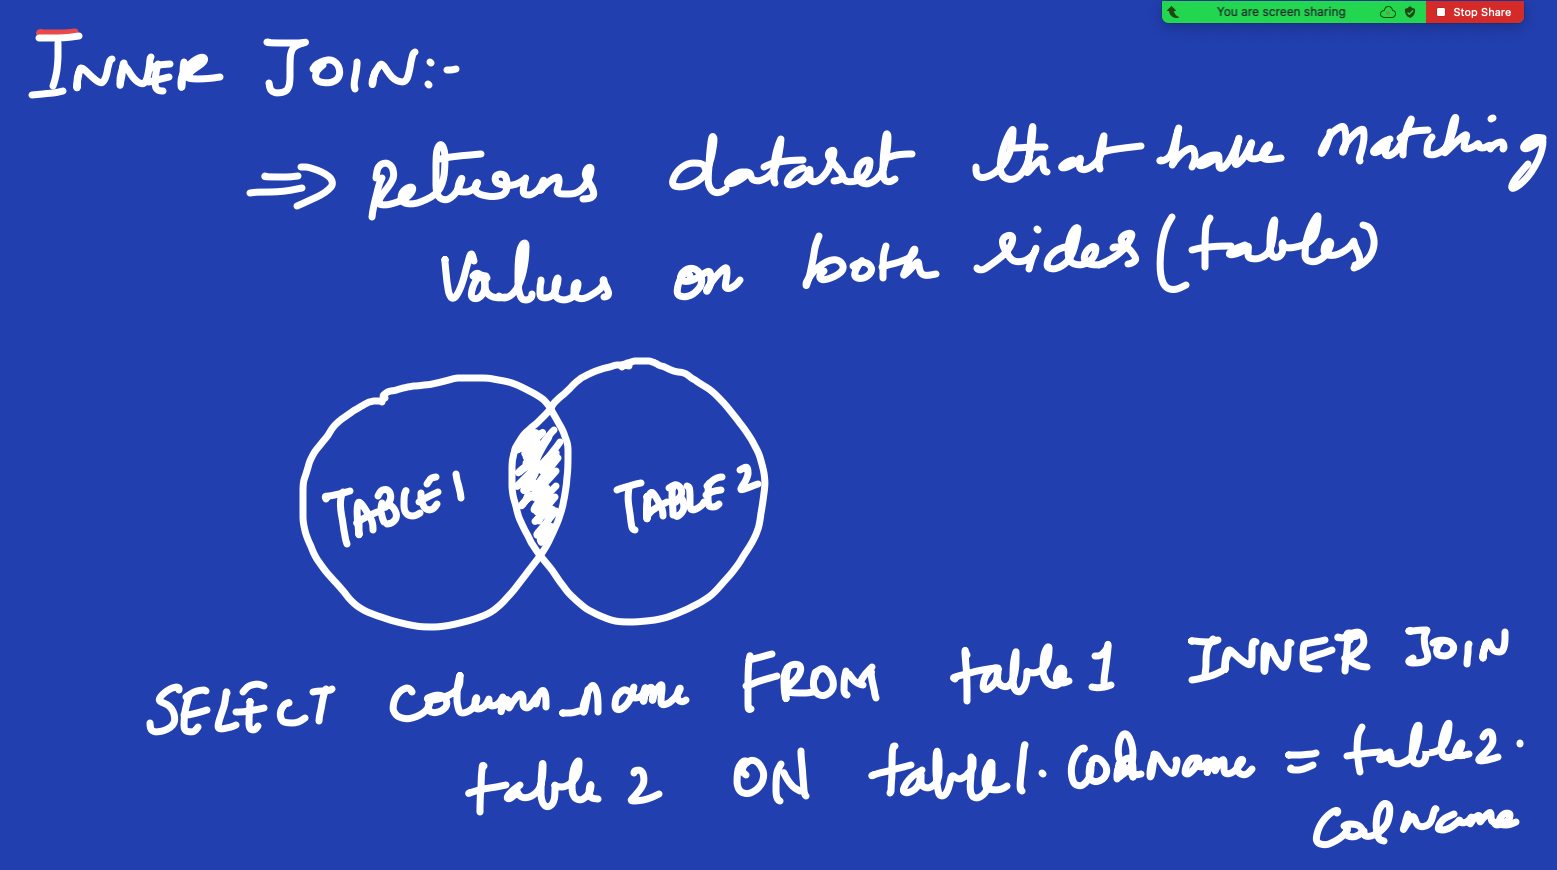 You are screen sharing Stop Share
INNER JOIN:-
=> Returns dataset that have Matching
Values on both sides (tables)
TABLE 1 TABLE 2
SELECT Column_name FROM table 1 INNER JOIN
table 2 ON table1.ColName = table2.
ColName